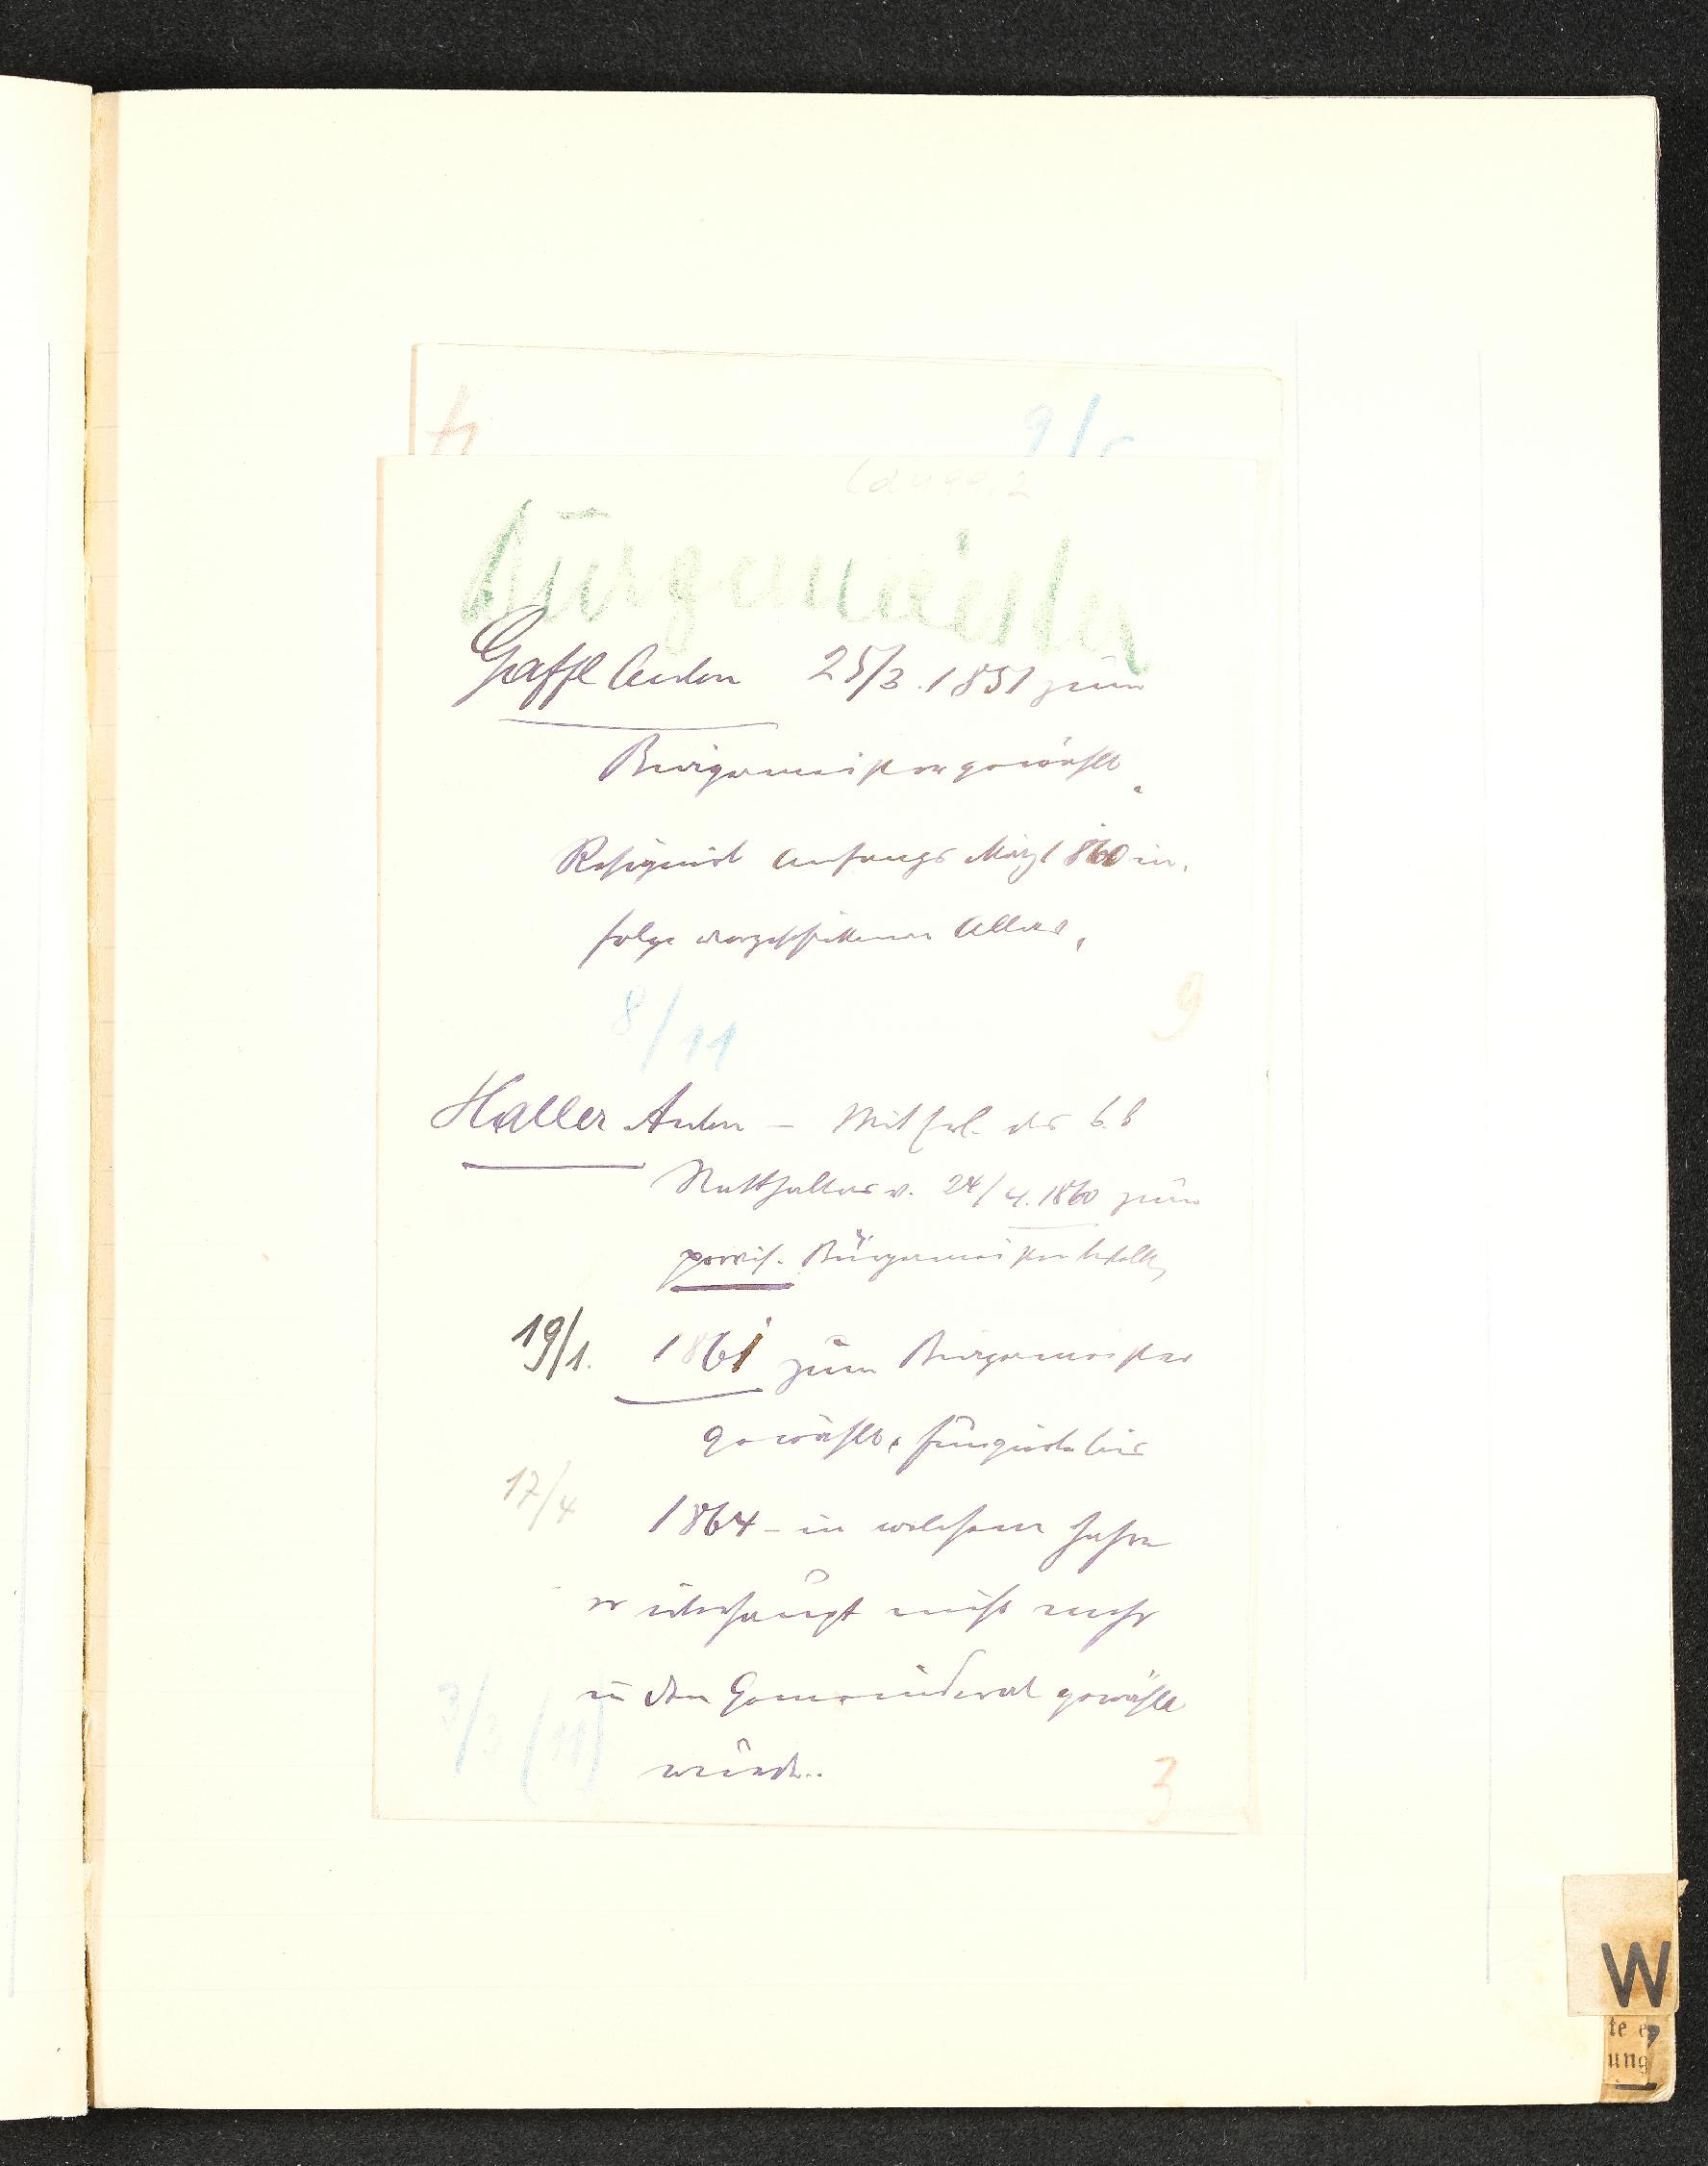 4
9/5
Bürgemeister
Gaffl Anton 25/3. 1851 zum
Bürgermeister gewählt.
Resignirt Anfangs März 1860 in-
folge vorgeschrittenen Alters,
9
8/11
Haller Anton - Mit Erl. des k. k
Statthalters v. 24/4. 1860 zum
provis. Bürgermeister bestellt,
19/1. 1861 zum Bürgermeister
gewählt. fungirte bis
17/4 1864 - in welchem Jahre
er überhaupt nicht mehr
in den Gemeinderat gewählt
wurde..
3/3 (11)
3
W
te e
ung